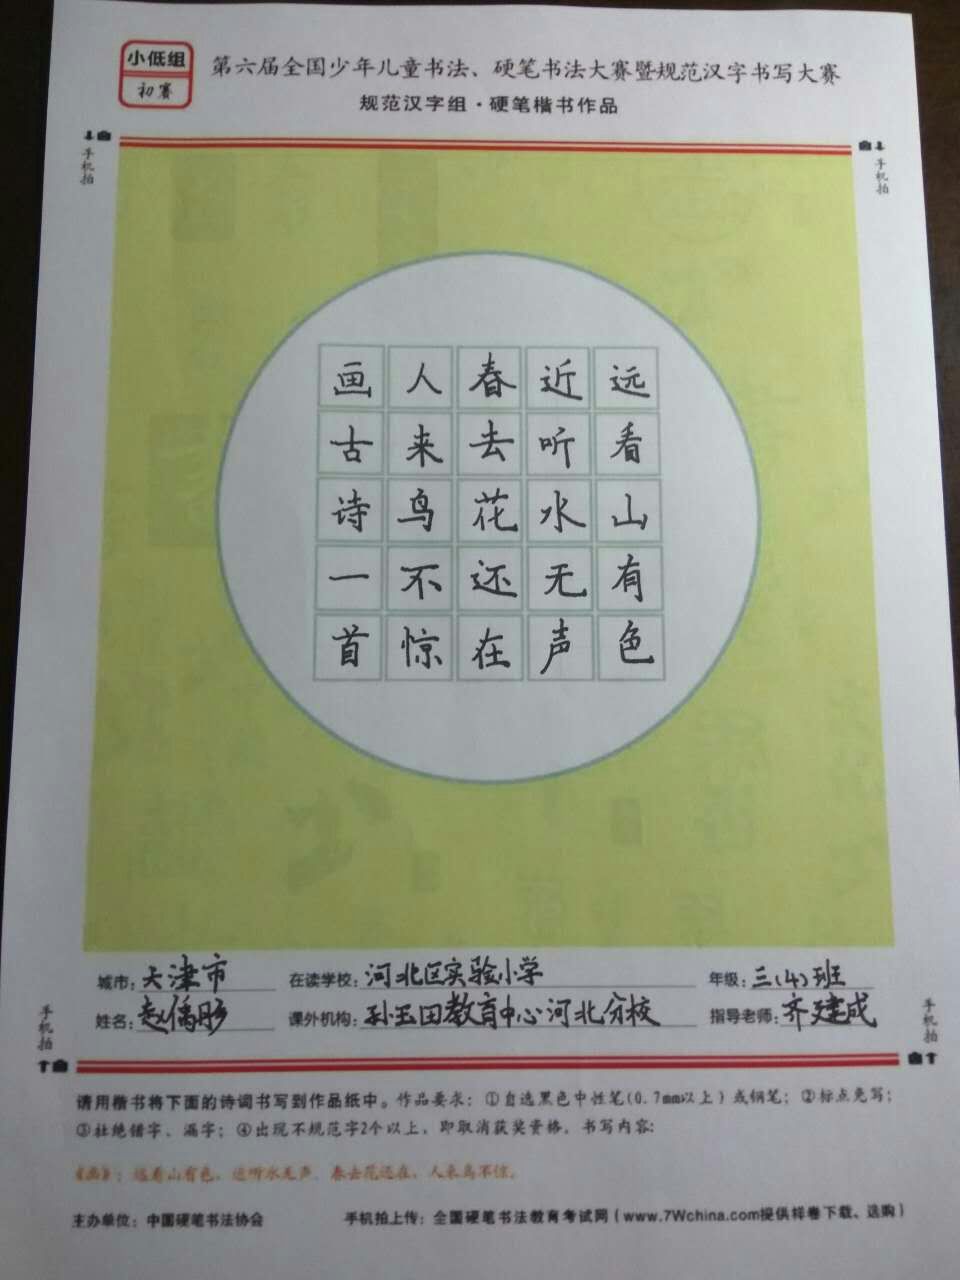 小低组
初赛
第六届全国少年儿童书法、硬笔书法大赛暨规范汉字书写大赛
规范汉字组·硬笔楷书作品
手机拍
手机拍
远看山有色
近听水无声
春去花还在
人来鸟不惊
画古诗一首
城市：天津市 在读学校：河北区实验小学 年级：三(4)班
姓名：赵 课外机构：孙玉田教育中心河北分校 指导老师：齐建成
手机拍
手机拍
请用楷书将下面的诗词书写到作品纸中。作品要求：①自选黑色中性笔(0.7mm以上）或钢笔；②标点免写；
③杜绝错字、漏字；④出现不规范字2个以上，即取消获奖资格。书写内容：
《画》：远看山有色，近听水无声。春去花还在，人来鸟不惊。
主办单位：中国硬笔书法协会 手机拍上传：全国硬笔书法教育考试网（www.7Wchina.com提供样卷下载、选购）